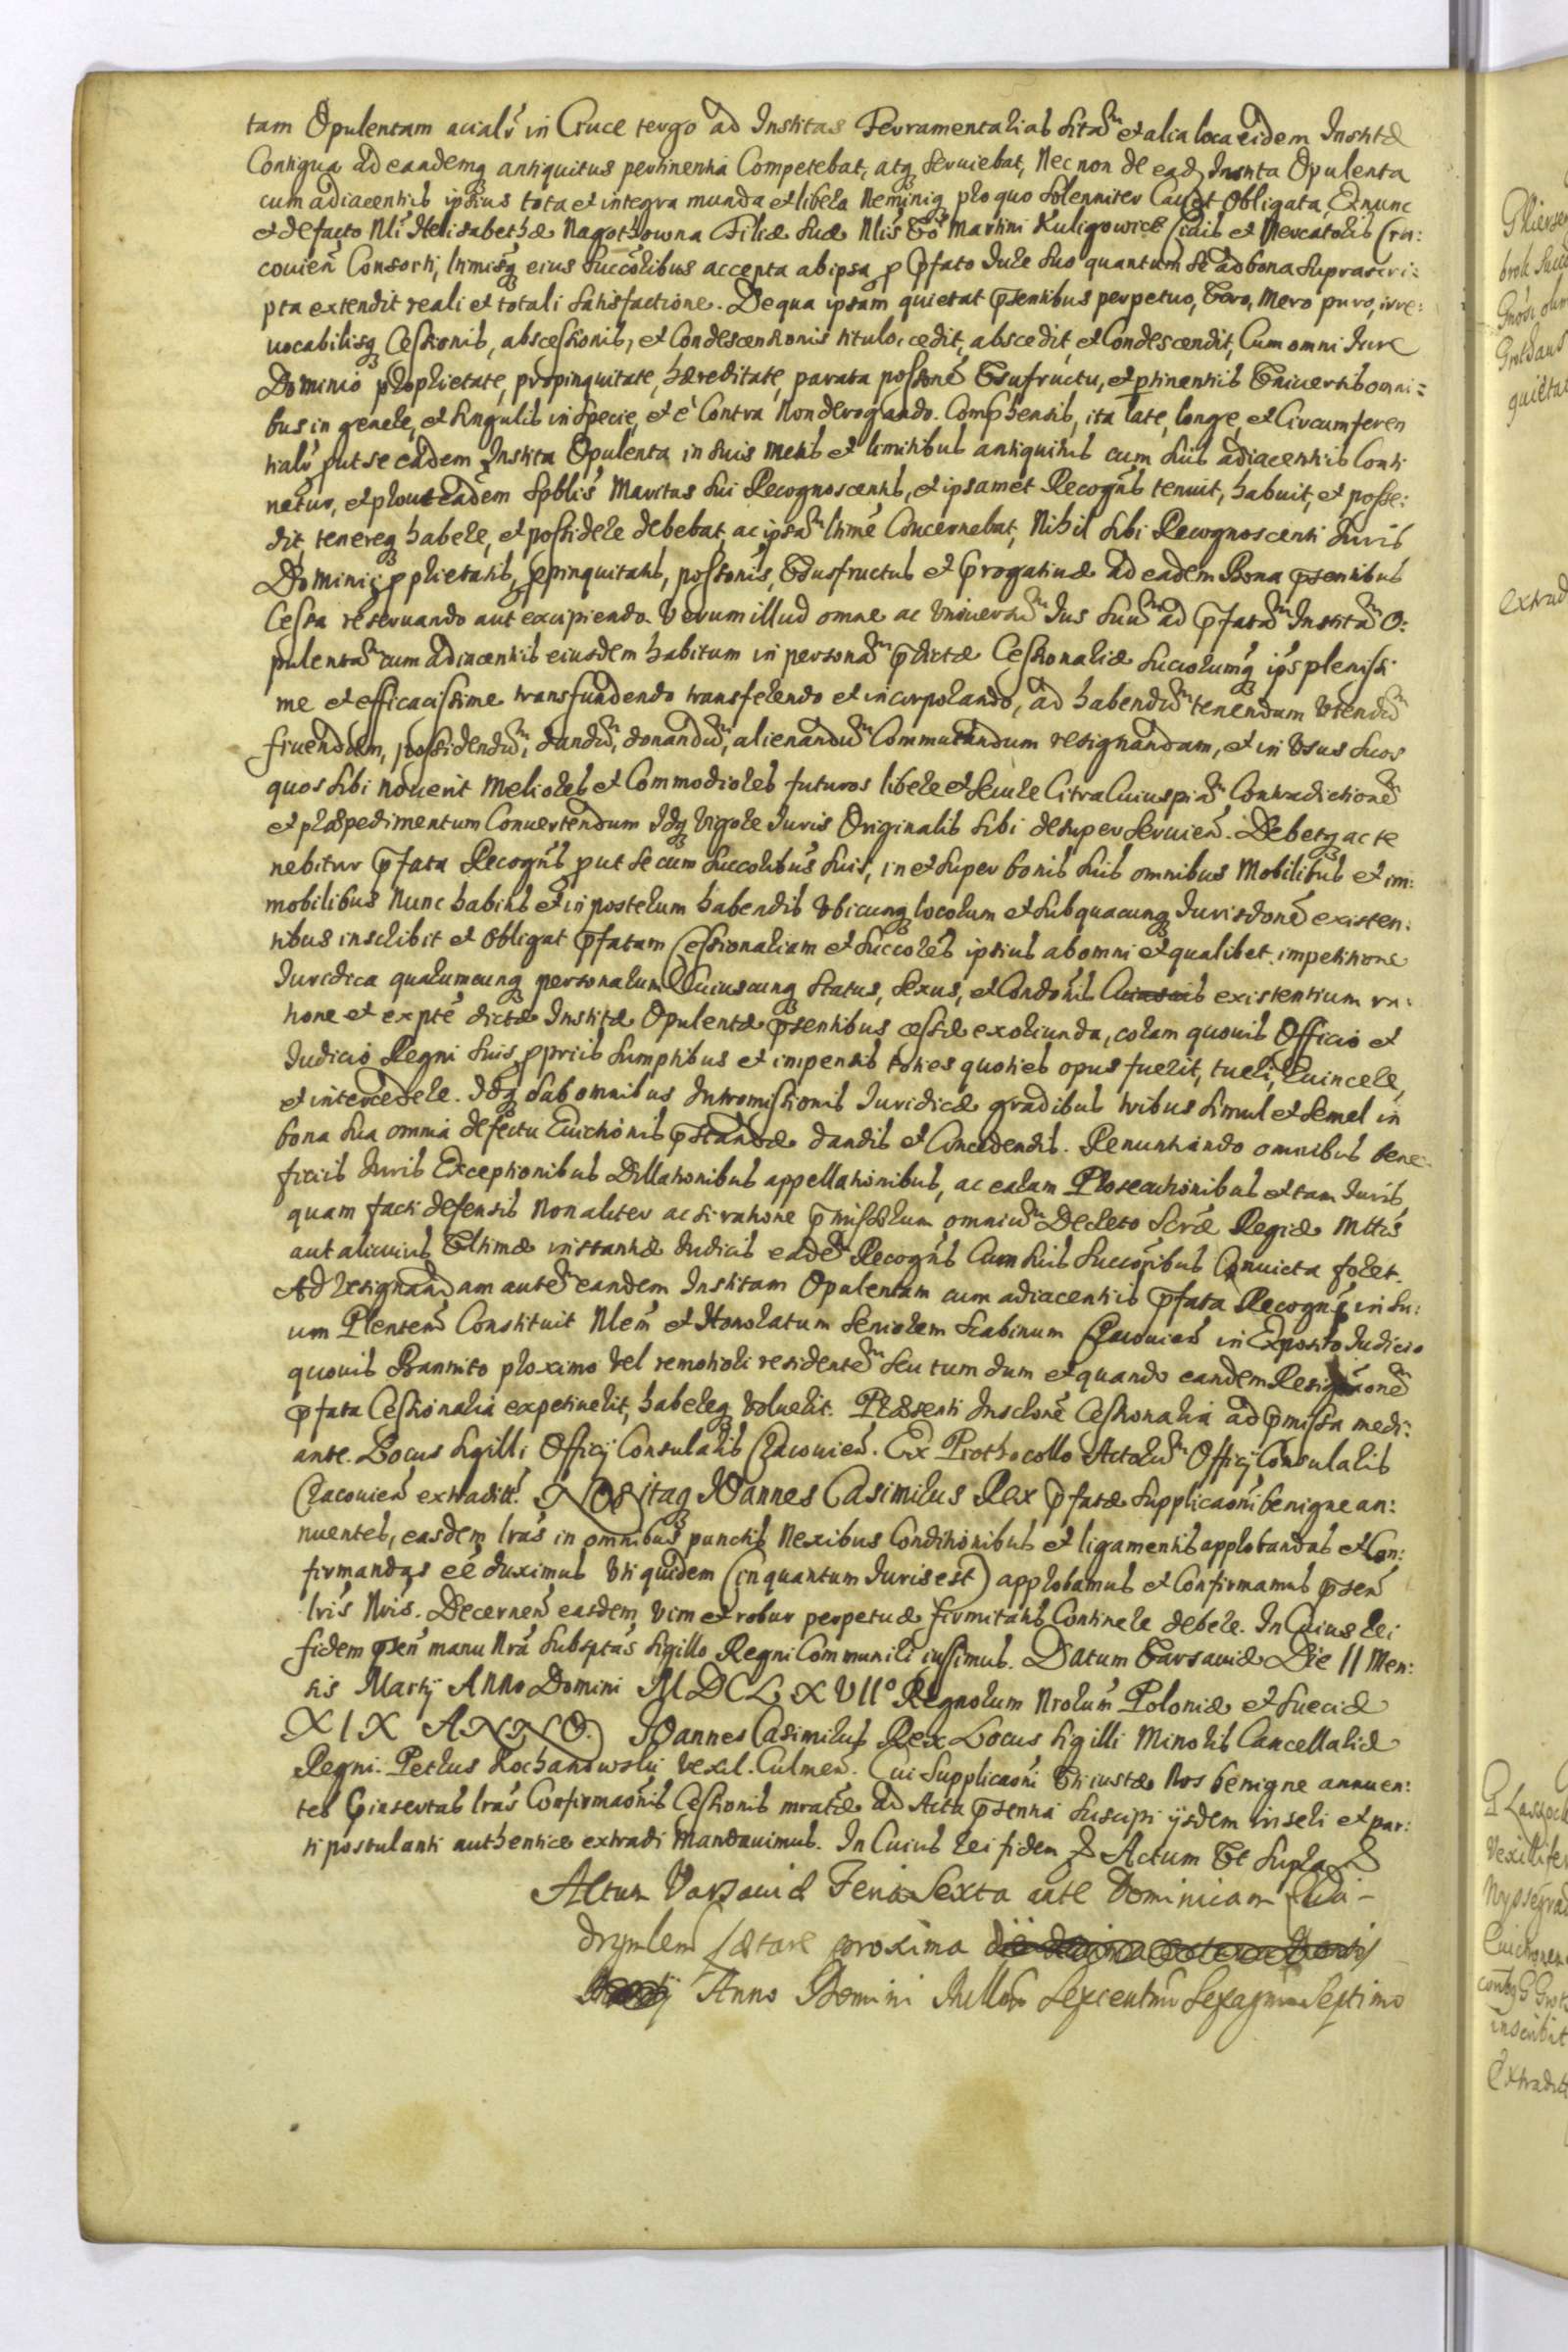 tam Opulentam acialr̃ in Cruce tergo ad Institas Ferramentalias sitam et alia loca eidem Institæ
Contigua ad eandemq antiquitus pertinentia Competebat, atq seruiebat, Nec non de ead Instita Opulenta
cum adiacentiis ipsius tota et integra munda et libera Neminiq pro quo solenniter Cauet Obligata, Ex nunc
et de facto Nli Helisabethæ Nagothowna Filiæ suæ Nlis Martini Kuligowicz Ciuis et Mercatoris Cra:
couien̄ Consorti, ltimisq eius succoribus accepta ab ipsa p pfato Iure suo quantum se ad bona suprascri:
pta extendit reali et totali satisfactione. De qua ipsam quietat pñtibus perpetuo, Vero, Mero puro, irre:
uocabilisq Cessionis, abscessionis, et Condescensionis titulo, cedit, abscedit, et Condescendit, Cum omni Iure
Dominio proprietate, propinquitate, hæreditate, parata possone Vsufructu, et ptinentiis Vniuersis omni=
bus in genere, et singulis in specie, et e Contra Non derogando. Comphensis, ita late, longe, et Circumferen
tialr̃ put se eadem Instita Opulenta in suis metis et limitibus antiquitus cum suis adiacentiis Conti
netur, et prout eadem Spblis Maritus sui Recognoscentis, et ipsamet Recogns tenuit, habuit, et posse:
dit, tenereq habere, et possidere debebat, ac ipsam ltime Concernebat, Nihil sibi Recognoscenti Iuris
Dominij pprietatis, ppinquitatis, possonis, Vsusfructus et Progatiuæ ad eadem Bona psentibus
Cessa reseruando aut excipiendo. Verum illud omne ac Vniuersum Ius suum ad pfatam Institam O:
pulentam cum adiacentiis eiusdem habitum in personam pdictæ Cessionariæ succorumq ips plenissi
me et efficacissime transfundendo transferendo et incorporando, ad habendum tenendum Vtendum
fruendum, possidendum, dandum, donandum, alienandum Commutandum resignandam, et in Vsus suos
quos sibi Nouerit Meliores et Commodiores futuros libere et secure Citra Cuiuspiam Contradictione
et præpedimentum Conuertendum Idq Vigore Iuris Originalis sibi desuper seruien̄. Debetq ac te
nebitur pfata Recogns put se cum succoribus suis, in et super bonis suis omnibus Mobilibus et im:
mobilibus Nunc habitis et in posterum habendis Vbicunq locorum et sub quacunq Iurisdone existen:
tibus inscribit et Obligat pfatam Cessionariam et succores ipsius ab omni et qualibet impetitione
Iuridica quarumcunq personarum Cuiuscunq Status, Sexus, et Condonis existentium ra:
tione et expte dictæ Institæ Opulentæ psentibus cessæ exoriunda, coram quouis Officio et
Iudicio Regni suis ppriis sumptibus et impensis toties quoties opus fuerit, tueri, Euincere,
et intercedere. Idq sub omnibus Intromissionis Iuridicæ gradibus tribus simul et semel in
bona sua omnia defectu Euictionis pstandæ dandis et Concedendis. Renuntiando omnibus bene
ficiis Iuris Exceptionibus Dillationibus appellationibus, ac earum Prosecutionibus et tam Iuris
quam facti defensis Non aliter ac si ratione pmissorum omnium Decreto Scræ Regiæ Mttis
aut alicuius Vltimæ instantiæ Iudicis eadem Recogns Cum suis succoribus Conuicta foret.
Ad resignandam autem eandem Institam Opulentam cum adiacentiis pfata Recogns in su:
um Plentem Constituit Nlem et Honoratum Seniorem Scabinum Cracouien̄ in Exposito Iudicio
quouis Bannito proximo Vel remotiori residentem seu tum dum et quando eandem Resignaonem
pfata Cessionaria expetiuerit, habereq Voluerit. Præsenti Inscrone Cessionaria ad pmissa medi:
ante. Locus Sigilli Officij Consularis Cracouien̄. Ex Prothocollo Actorum Officij Consularis
Cracouien̄ extraditt. NOS itaq IOannes Casimirus Rex pfatæ supplicaoni benigne an:
nuentes, easdem lras in omnibus punctis Nexibus Conditionibus et ligamentis approbandas et Con:
firmandas eē duximus Vti quidem (in quantum Iuris est) approbamus et Confirmamus psen̄
lris Nris. Decernen̄ easdem Vim et robur perpetuæ firmitatis Continere debere. In Cuius rei
fidem psen̄ manu Nrā subsptas sigillo Regni Communiri iussimus. Datum Varsauiæ Die 11 Men:
sis Martij Anno Domini MDCLXVII° Regnorum Nrorum Poloniæ et Sueciæ
XIX ANNO. IOannes Casimirus Rex Locus Sigilli Minoris Cancellariæ
Regni. Petrus Kochanowski Vexil. Culmen̄. Cui supplicaoni Vti iustæ Nos benigne annuen:
tes pinsertas lras Confirmaonis Cessionis mratæ ad Acta psentia suscipi ijsdem inseri et par:
ti postulanti authentice extradi Mandauimus. In Cuius rei fidem & Actum Vt supra &
Actum Varsauiæ Feria Sexta ante Dominicam Qua-
drgmlem Lætare proxima
Anno Domini Millmo Sexcentmo Sexagmo Septimo